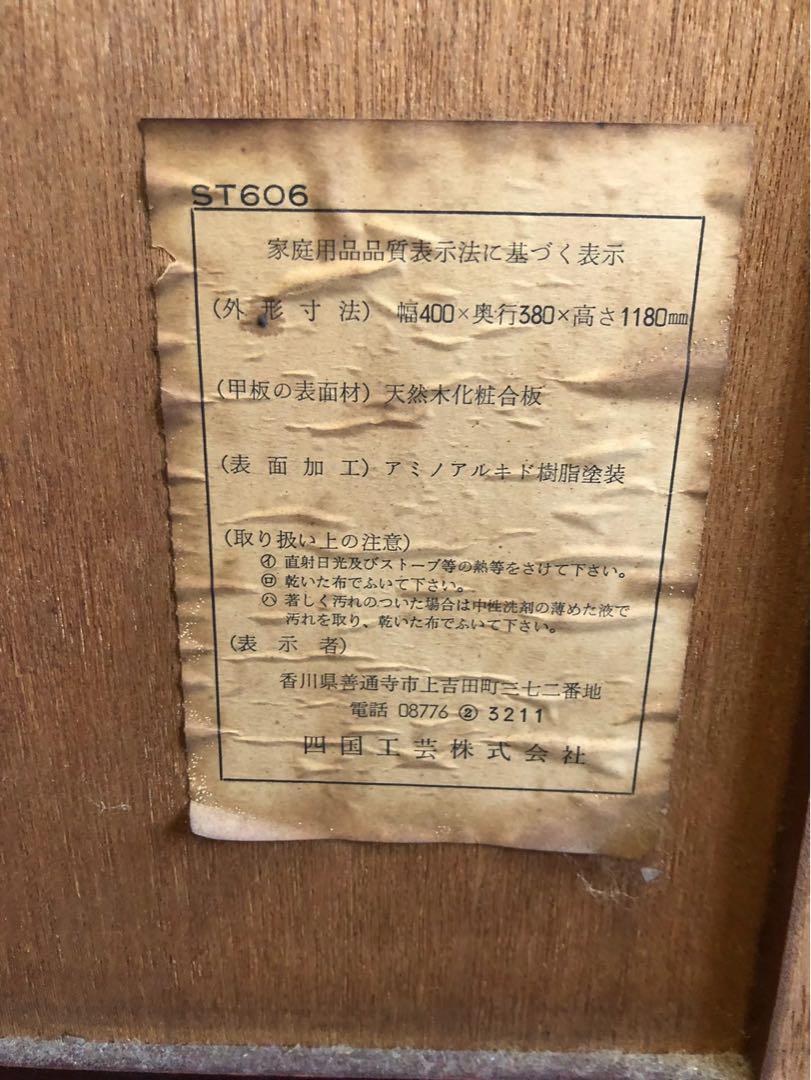 ST606
家庭用品品質表示法に基づく表示
(外形寸法) 幅400×奥行380×高さ1180㎜
(甲板の表面材) 天然木化粧合板
(表面加工) アミノアルキド樹脂塗装
(取り扱い上の注意)
㋑ 直射日光及びストーブ等の熱等をさけて下さい。
㋺ 乾いた布でふいて下さい。
㋩ 著しく汚れのついた場合は中性洗剤の薄めた液で
汚れを取り、乾いた布でふいて下さい。
(表示者)
香川県善通寺市上吉田町三七二番地
電話 08776 ② 3211
四国工芸株式会社